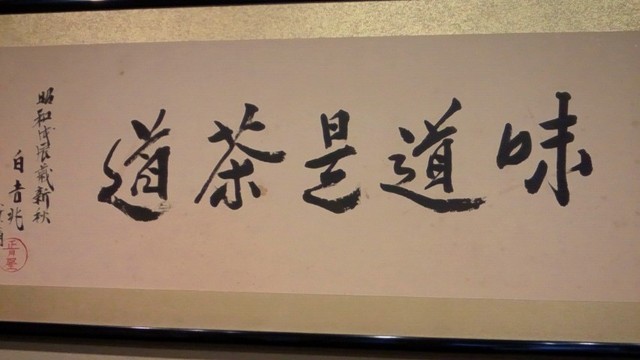 味道是茶道
昭和戊辰歳新秋